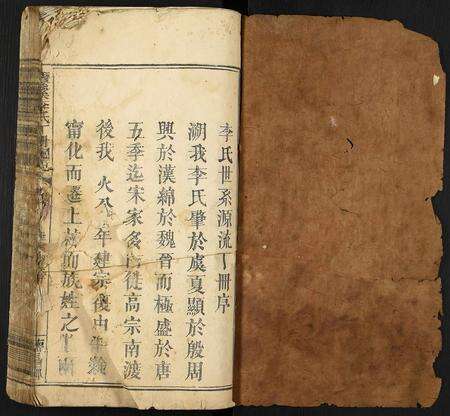 李氏世系源流丁冊序
溯我李氏肇於虞夏顯於殷周
興於漢綿於魏晉而極盛於唐
五季迄宋家多徙高宗南渡
後我火公年建宗復由
甯化而遷上杭而族姓之